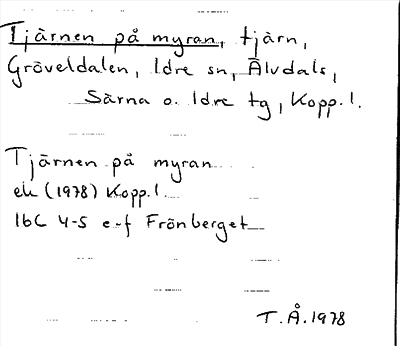 Tjärnen på myran, tjärn,
Gröveldalen, Idre sn, Älvdals,
Särna o. Idre tg, Kopp.l.
Tjärnen på myran
ek (1978) Kopp.l.
16C 4-5 e-f Frönberget
T.Å.1978